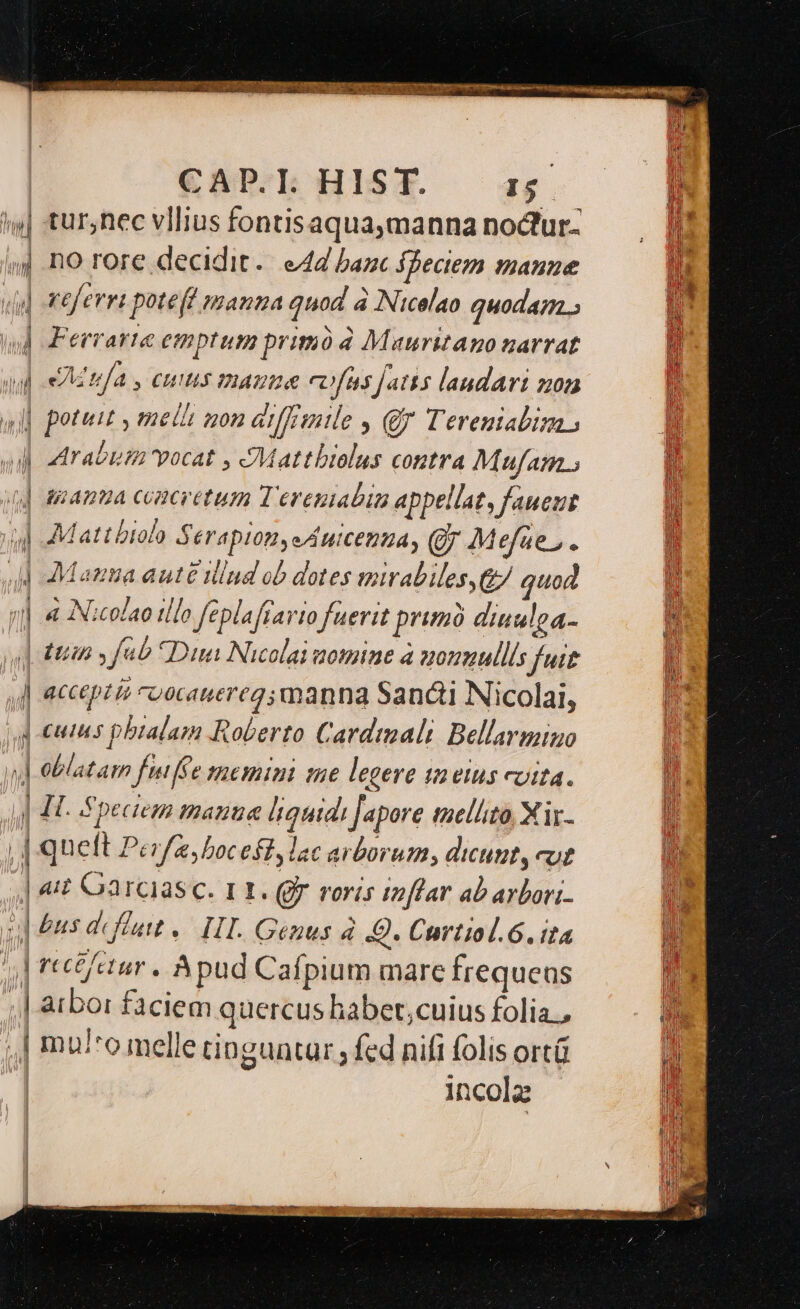 CAP. I. HIST. 15
tur, nec vllius fontis aqua, manna noctur-
no rore decidit. Ad hanc speciem mannæ
referri potest manna quod à Nicelao quodam
Ferrariæ emptum primò à Mauritano narrat
Musa, cuius mannæ vsus satis laudari non
potuit, melli non dissimile, & Tereniabim
Arabum vocat, Matthiolus contra Musam
manna concretum Tereniabin appellat, fauent
Matthiolo Serapion, Auicenna, & Mesue.
Manna autē illud ob dotes mirabiles, & quod
à Nicolao illo seplasiario fuerit primò diuulga-
tum, sub Diui Nicolai nomine à nonnullis fuit
acceptū vocauereq; manna Sancti Nicolai,
cuius phialam Roberto Cardinali Bellarmino
oblatam fuisse memini me legere in eius vita.
II. Speciem mannæ liquidi sapore mellito, Xir-
quest Persæ, hoc est, lac arborum, dicunt, vt
ait Garcias c. 11. & roris instar ab arbori-
bus defluit. III. Genus à Q. Curtio l. 6. ita
recēsetur. Apud Caspium mare frequens
arbor faciem quercus habet, cuius folia
multo melle tinguntur, sed nisi solis ortū
incolæ